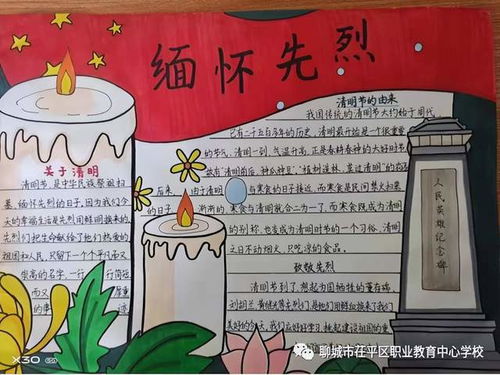 缅怀先烈
清明节的由来
我国传统的清明节大约始于周代,
已有二千五百多年的历史,清明最开始是一个很重要
的节气,清明一到,气温升高,正是春耕春种的大好时节,
故有“清明前后,种瓜种豆”“植树造林,莫过清明”的农谚
后来,由于清明与寒食的日子接近,而寒食是民间禁火扫墓
的日子,渐渐的,寒食与清明就合二为一了,而寒食既成为清明
的别称,也变成为清明时节的一个习俗,清明
之日不动烟火,只吃凉的食品。
致敬先烈
清明节到了,想起为国牺牲的董存瑞、
刘胡兰、黄继光等先烈们,是他们用鲜血换来了我们
美好的今天,我们应好好学习,担起建设祖国的重
关于清明
清明节,是中华民族祭祖扫
墓、缅怀先烈的日子,因为我们今
天的幸福生活是先烈用鲜明换来的,
先烈们把生命献给了他们热爱的
祖国和人民,只留下一个个平凡而又
崇高的名字,一行行简短
而又厚重
的事
人民英雄纪念碑
X30
聊城市茌平区职业教育中心学校